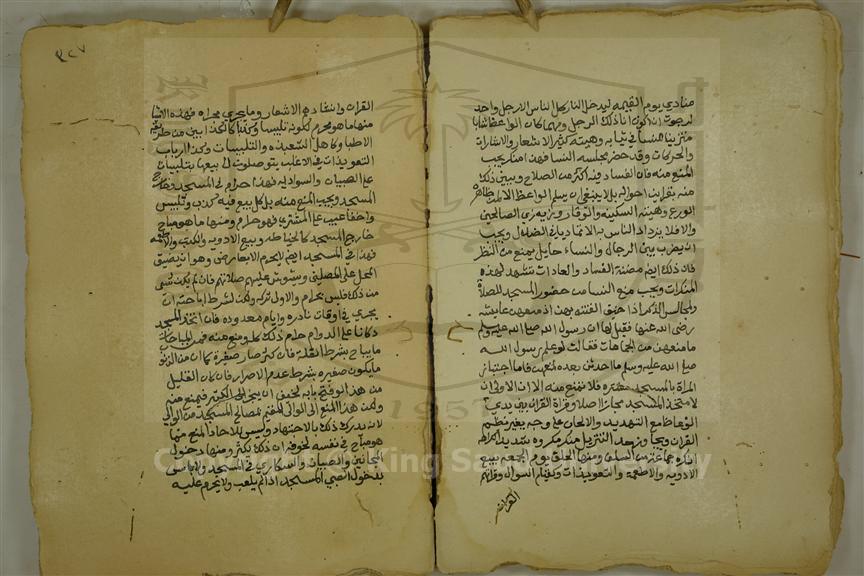 منادي يوم القيمه ليدخل النار كل الناس الا رجل واحد
لرجوت ان اكون انا ذلك الرجل ومهما كان الواعظ شابا
متزينا للنساء في ثيابه وهيئته كثير الاشعار والاشارات
والحركات وقد حضر مجلسه النسا فهذا منكر يجب
المنع منه فان الفساد فيه اكثر من الصلاح ويبين ذلك
منه بقراين احواله بل لا ينبغي ان يسلم الواعظ الا لمن ظاهره
الورع وهيئته السكينة والوقار وزيه زي الصالحين
والا فلا يزداد الناس به الا تماديا في الضلال ويجب
ان يضرب بين الرجال والنساء حايل يمنع من النظر
فان ذلك ايضا مظنة الفساد والعادات تشهد لهذه
المنكرات ويجب منع النسا من حضور المسجد للصلاة
ومجالس الذكر اذا خيف الفتنه بهن اذ منعتهن عايشه
رضي الله عنها فقيل لها ان رسول الله صلى الله عليه وسلم
ما منعهن من الجماعات فقالت لو علم رسول الله
صلى الله عليه وسلم ما احدثن بعده لمنعهن فاما اجتياز
المراة بالمسجد مستترة فلا تمنع منه الا ان الاولى ان
لا تتخذ المسجد مجازا اصلا وقراة القران بين يدي
الوعاظ مع التمديد والالحان على وجه يغير نظم
القران ويجاوز حد التنزيل منكر مكروه شديد الكراهة
انكره جماعة من السلف ومنها الحلق يوم الجمعه لبيع
الادويه والاطعمة والتعويذات وكقيام السوال وقراتهم
القران
٣٢٧
القران وانشادهم الاشعار وما يجري مجراه فهذه الاشيا
منها ما هو محرم لكونه تلبيسا وكذبا كالكذابين من طرقيه
الاطبا وكاهل الشعبذه والتلبيسات وكذا ارباب
التعويذات في الاغلب يتوصلون الى بيعها بتلبيسات
على الصبيان والسواديه فهذا حرام في المسجد وخارج
المسجد ويجب المنع منه بل كل بيع فيه كذب وتلبيس
واخفا عيب على المشتري فهو حرام ومنها ما هو مباح
خارج المسجد كالخياطه وبيع الادويه والكتب والاطعمه
فهذا في المسجد ايضا لا يحرم الا بعارض وهو ان يضيق
المحل على المصلين ويشوش عليهم صلاتهم فان لم يكن شي
من ذلك فليس بحرام والاولى تركه ولكن لشرط اباحته ان
يجري في اوقات نادره وايام معدوده فان اتخذ المسجد
دكانا على الدوام حرم ذلك كله ومنع منه فمن المباحات
ما يباح بشرط القلة فان كثر صار صغيره كما ان من الذنوب
ما يكون صغيره بشرط عدم الاصرار فان كان القليل
من هذا لو فتح بابه لخيف ان ينجر الى الكثير فيمنع منه
وليكن هذا المنع الى الوالي او الى القيم بمصالح المسجد من الوالي
لانه يدرك ذلك بالاجتهاد وليس للاحاد المنع مما
هو مباح في نفسه لخوفه ان ذلك يكثر ومنها دخول
المجانين والصبيان والسكاري في المسجد ولا باس
بدخول الصبي المسجد اذا لم يلعب ولا يحرم عليه
1957
Copyright © King Saud University